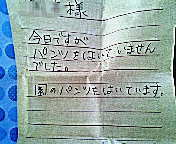 様
今日ですが
パンツをはいていません
でした。
園のパンツをはいています。